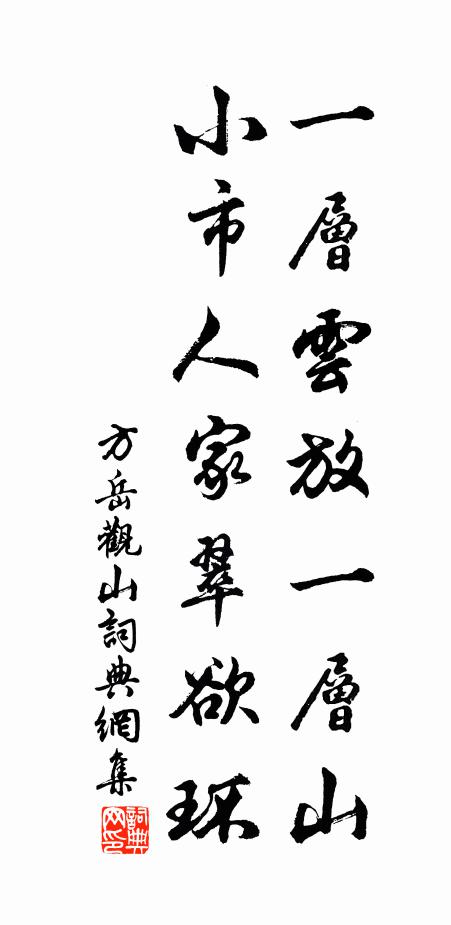 一層雲放一層山
小市人家翠欲環
方岳觀山詞典網集
詞典網印